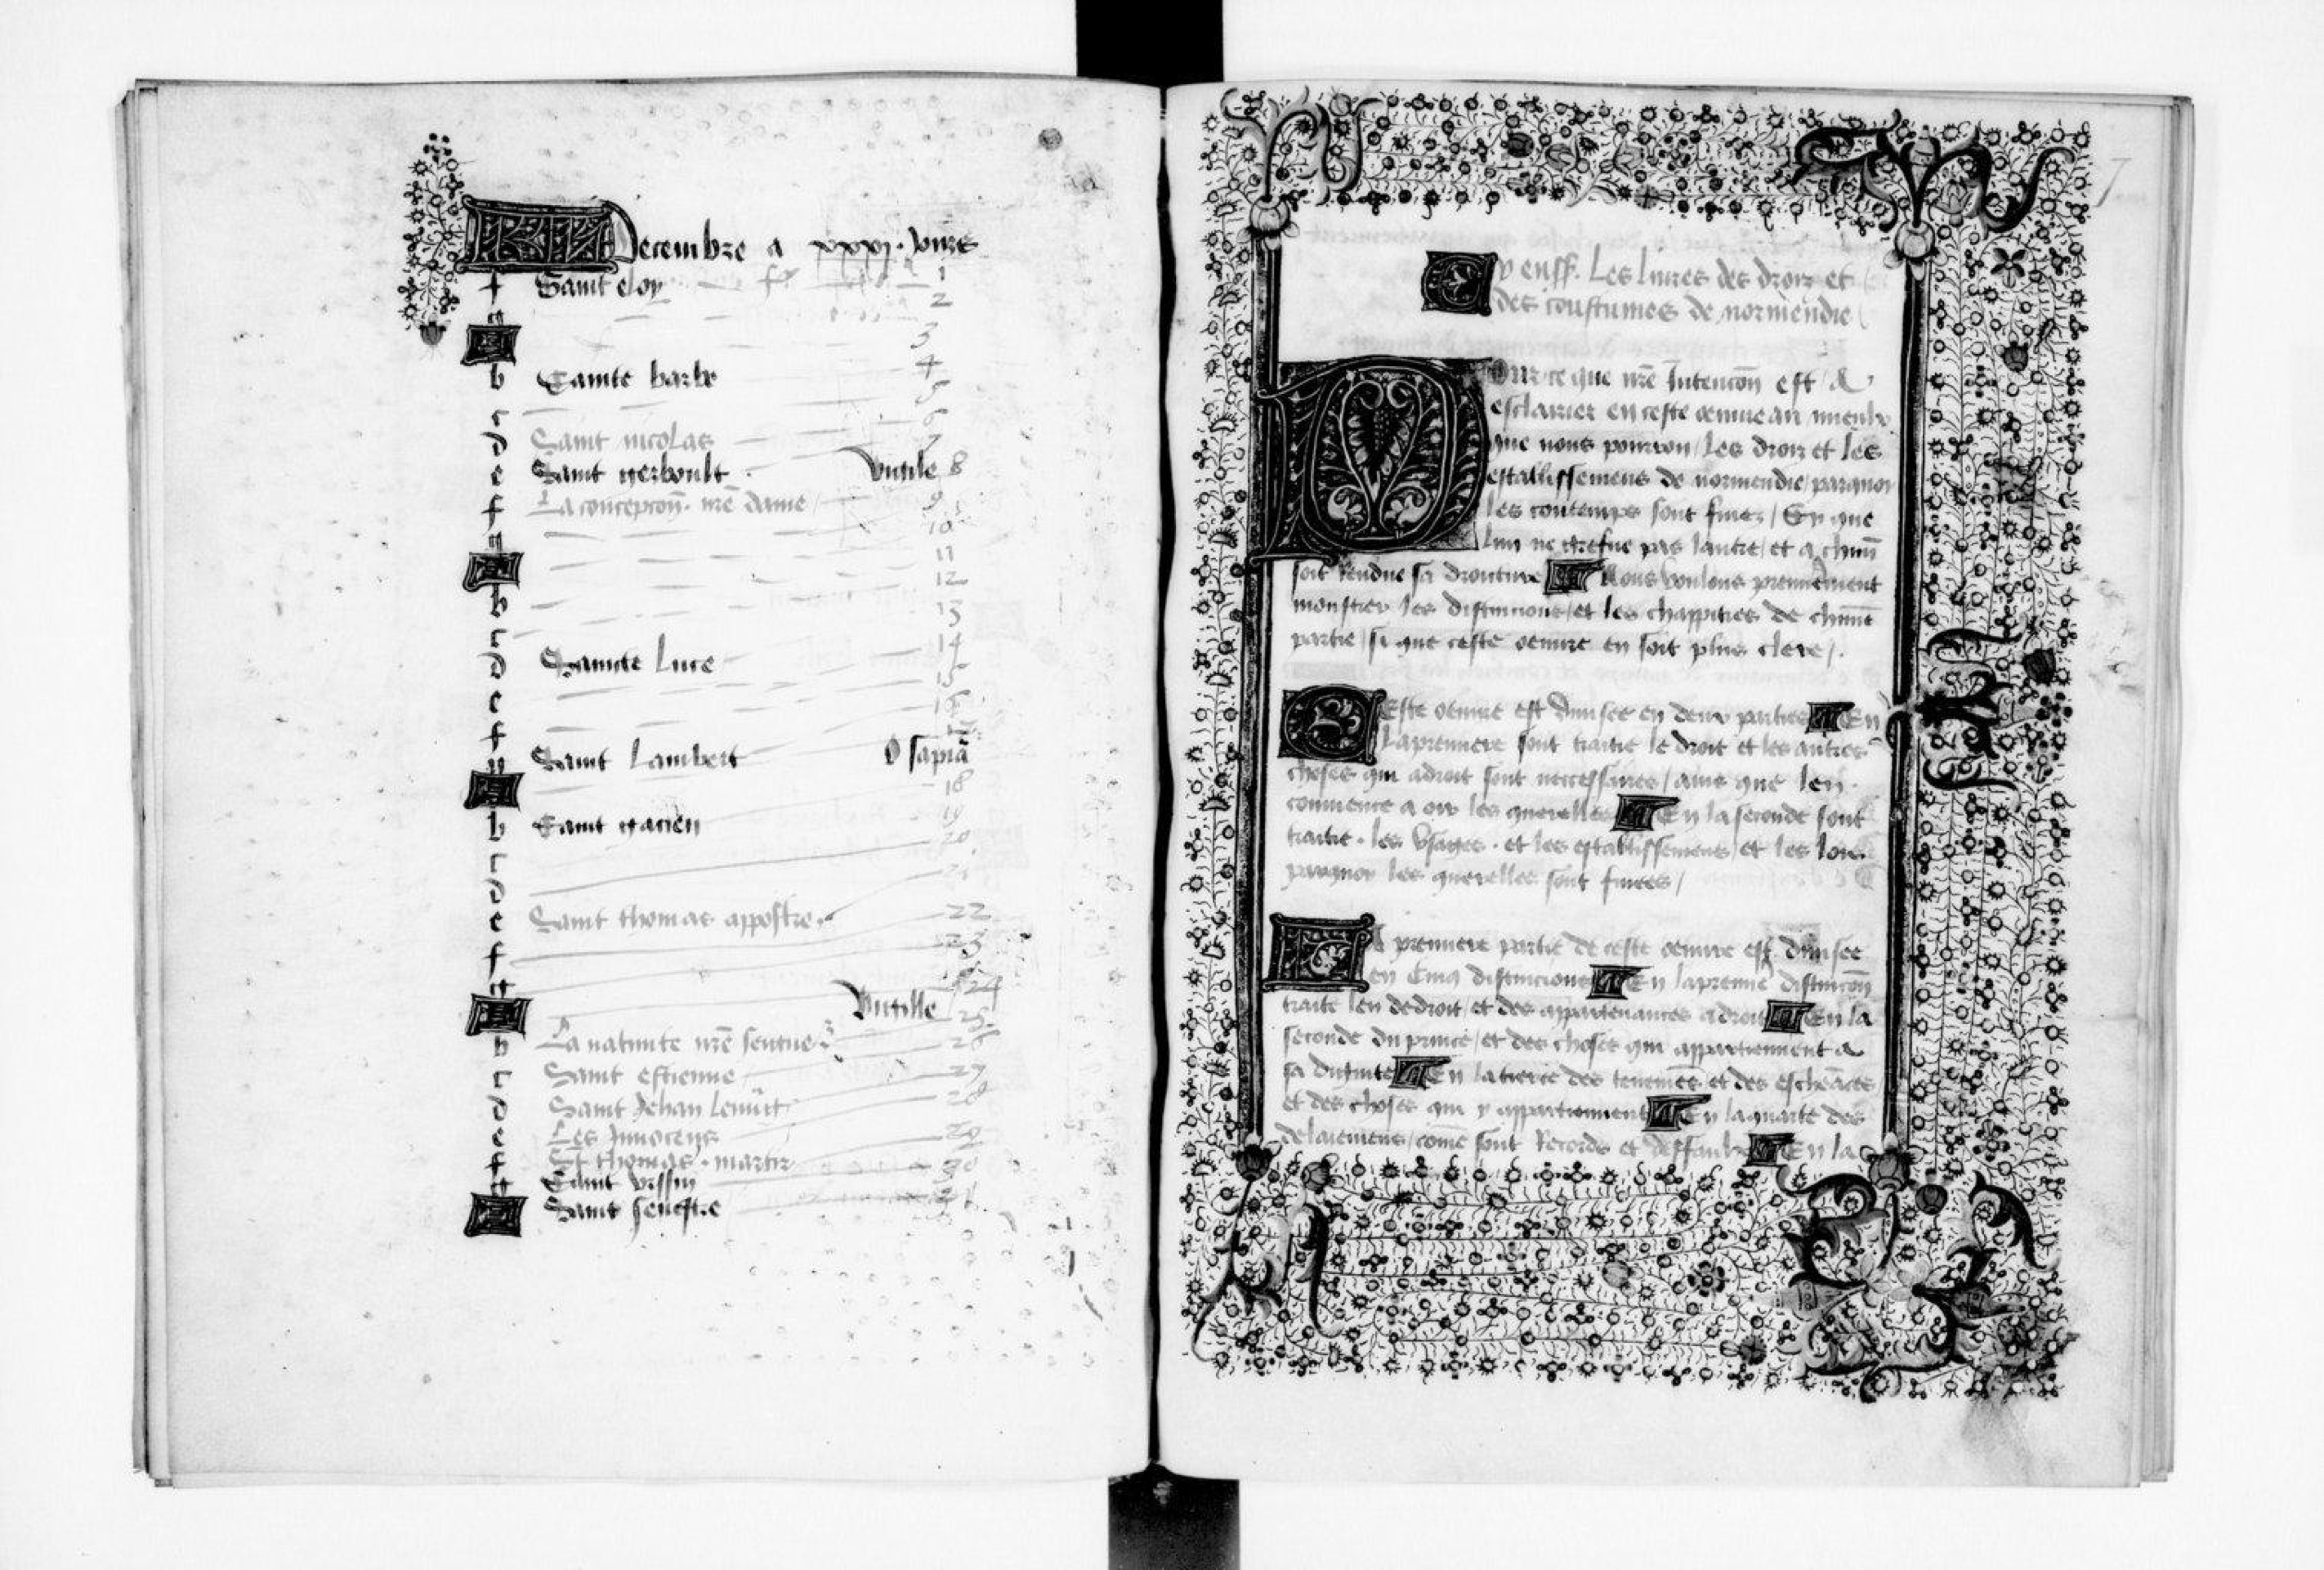 KL Decembre a xxxj. jours
f Saint eloy 1
g 2
A 3
b Sainte barbe 4
c 5
d Saint nicolas 6
e Saint gerboult 7
Vigile 8
f La concepcon. nre dame 9
g 10
A 11
b 12
c 13
d Sainte luce 14
e 15
f 16
g Saint lambert O sapia
A 18
b Saint gacien 19
c 20
d 21
e Saint thomas appostre. 22
f 23
g 24
A Vigille 25
b La nativite nre seigneur 26
c Saint estienne 27
d Saint Jehan 28
e Les Innocens 29
f St thomas. martir 30
g Saint
A Saint sevestre
7
Cy enss. Les livres des droiz et
des coustumes de normendie
Pour ce que nre Intencon est de
esclarier en ceste oeuvre au mieulx
que nous pourron / les droiz et les
establissemens de normendie / parquoy
les contemps sont finez / Sy que
lun ne pas lautre / et a chun
soit Rendue sa droiture Nous voulons premierement
monstrer les distincions / et les chappitres de chune
partie / si que ceste oeuvre en soit plus clere /.
Ceste oeuvre est divisee en deux parties En
la premiere sont traitie le droit et les autres
choses qui a droit sont neccessaires / ains que len
commence a oir les querelles En la seconde sont
traitie. les Usages. et les establissemens / et les loix.
parquoy les querelles sont finees /
La premiere partie de ceste oeuvre est divisee
en Cinq distincions En la premie distincon
traite len de droit / et des appartenances a droit En la
seconde du prince / et des choses qui appartiennent a
sa dignite En la tierce des tenemes et des escheaces
et des choses qui y appartiennent En la quarte des
delaiemens / come sont Records et deffaultes En la